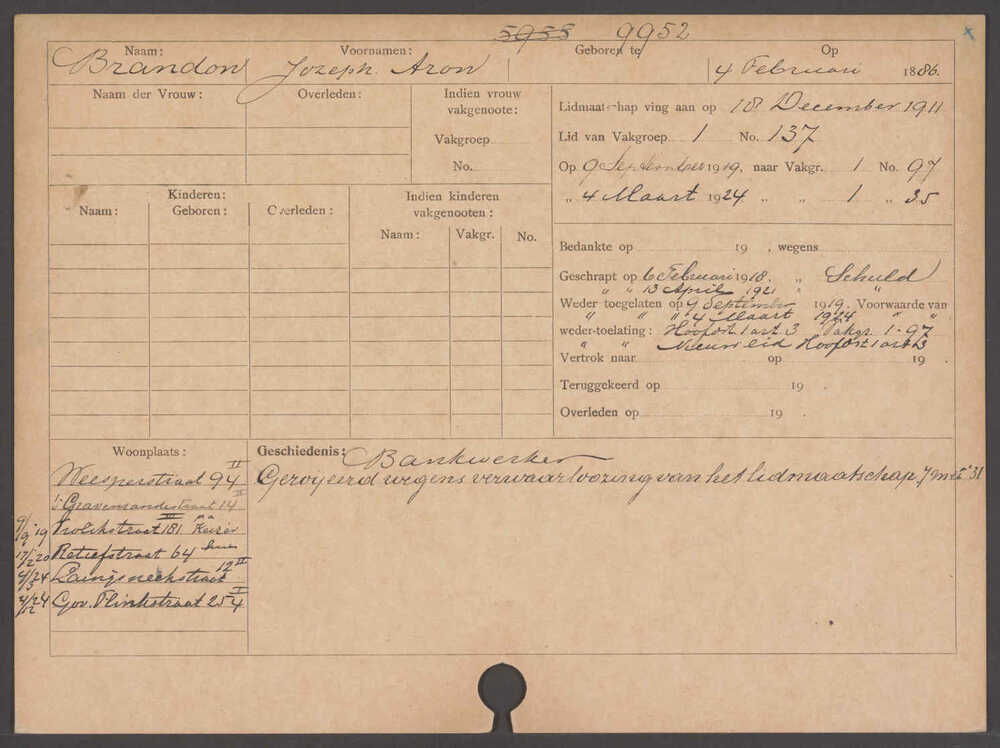 5955 9952
Naam: Voornamen: Geboren te Op
Brandon Jozeph Aron 4 Februari 1886.
Naam der Vrouw: Overleden: Indien vrouw vakgenoote:
Vakgroep
No.
Lidmaatschap ving aan op 18 December 1911
Lid van Vakgroep 1 No. 137
Op 9 September 1919, naar Vakgr. 1 No. 97
„ 4 Maart 1924 „ „ 1 „ 35
Kinderen:
Naam: Geboren: Overleden:
Indien kinderen vakgenooten:
Naam: Vakgr. No.
Bedankte op 19 , wegens
Geschrapt op 6 Februari 1918. „ Schuld
„ „ 13 April 1921 „ „
Weder toegelaten op 9 September 1919. Voorwaarde van
„ „ „ 4 Maart 1924 „ „
weder-toelating: Hoofdst 1 art. 3 Vakgr. 1-97
„ „ Nieuw lid Hoofdst 1 art 3
Vertrok naar op 19 .
Teruggekeerd op 19 .
Overleden op 19 .
Woonplaats:
Weesperstraat 94 II
's Gravesandestraat 14 II
9/9 '19 Swolckstraat 181 III
17/2 '20 Retiefstraat 64 huis
4/3 '24 Laingsnekstraat 12 II
4/12 '24 Gov. Flinkstraat 254 I
Geschiedenis:
Bankwerker
Geroyeerd wegens verwaarloozing van het lidmaatschap, 7 mei '31